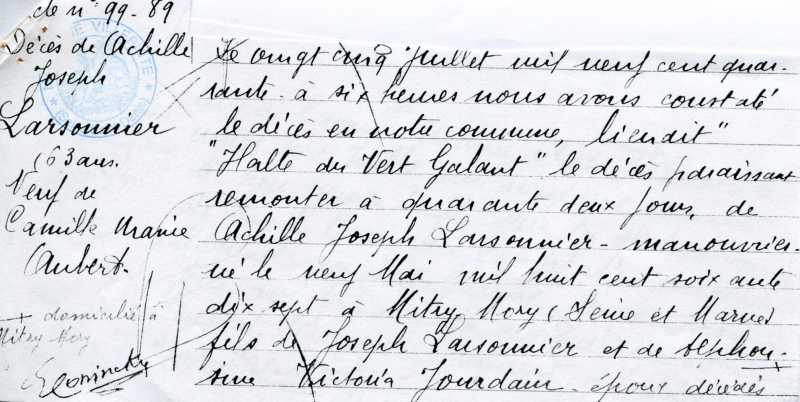 de n° 99-89
Décès de Achille
Joseph
Larsonnier
63 ans.
Veuf de
Camille Uranie
Aubert.
+ domicilié à
Mitry Mory
Le vingt cinq juillet mil neuf cent quar-
rante à six heures nous avons constaté
le décès en notre commune, lieudit "
"Halte du Vert Galant" le décès paraissant
remonter à quarante deux jours, de
Achille Joseph Larsonnier - manouvrier -
né le neuf Mai mil huit cent soixante
dix sept à Mitry Mory (Seine et Marne)
fils de Joseph Larsonnier et de Alphon-
sine Victoria Jourdain - époux décédés